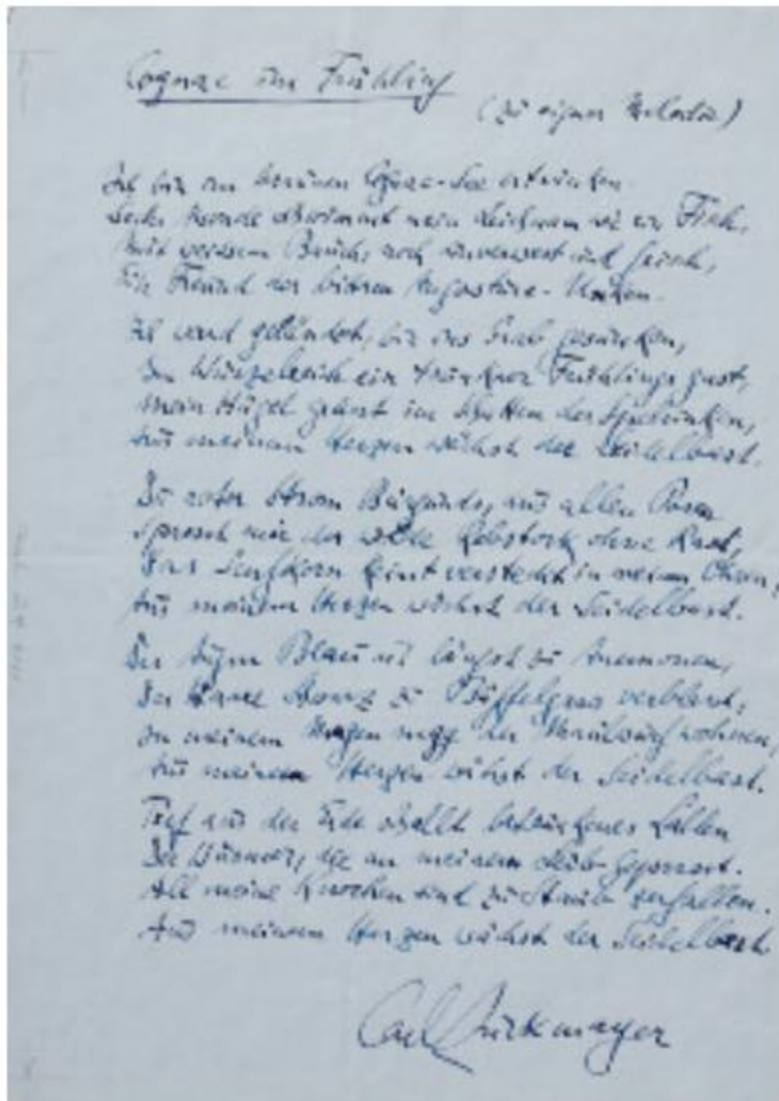 Cognac im Frühling
(Zu eigner Melodie)
Ich bin im braunen Cognac-See ertrunken.
Sechs Monde schwimmt mein Leichnam wie ein Fisch,
Mit weissem Bauch, noch unverwest und frisch,
Ein Freund der bittren Angostura-Unken.
Ich ward geländet, bin ins Grab gesunken,
Im Wurzelreich ein trunkner Frühlingsgast,
Mein Hügel grünt im Schatten der Spelunken,
Aus meinem Herzen wächst der Seidelbast.
Du roter Strom Burgunds, aus allen Poren
Sprosst mir der wilde Rebstock ohne Rast,
Das Senfkorn keimt versteckt in meinen Ohren,
Aus meinem Herzen wächst der Seidelbast.
Der Augen Blau ist längst zu Anemonen,
Der Haare zu Büffelgras verblasst;
In meinem Magen mag der Maulwurf wohnen,
Aus meinem Herzen wächst der Seidelbast.
Tief aus der Erde schallt betrunkenes Lallen
Der Würmer, die an meinem Leib geprasst.
All meine Knochen sind zu Staub zerfallen.
Aus meinem Herzen wächst der Seidelbast.
Carl Zuckmayer